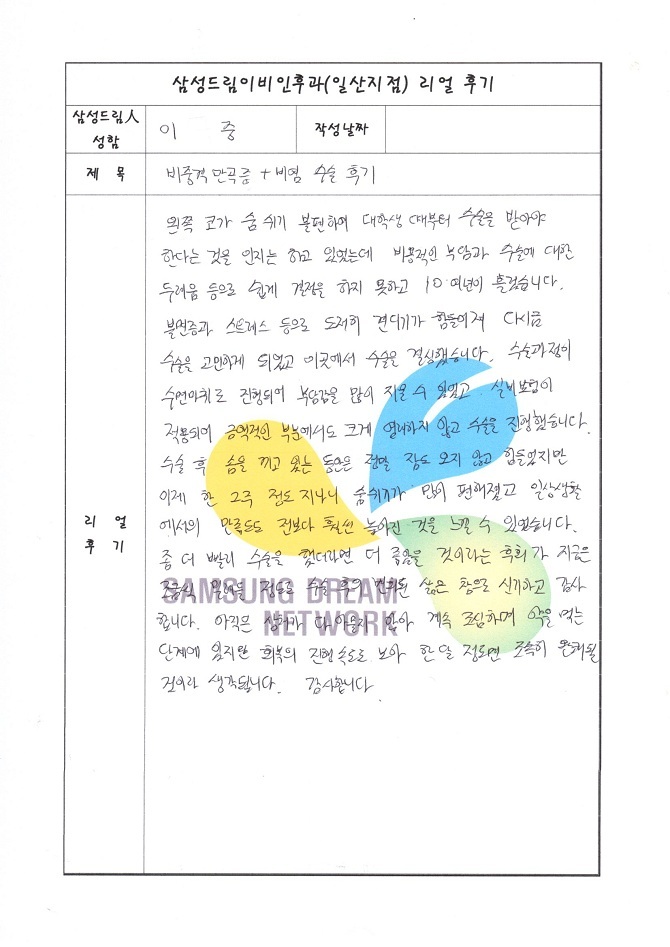 삼성드림이비인후과(일산지점) 리얼 후기
삼성드림人
성함
이 중
작성날짜
제 목
비중격 만곡증 + 비염 수술 후기
리 얼
후 기
왼쪽 코가 숨 쉬기 불편하여 대학생 때부터 수술을 받아야
한다는 것을 인지는 하고 있었는데 비용적인 부담과 수술에 대한
두려움 등으로 쉽게 결정을 하지 못하고 10여년이 흘렀습니다.
불면증과 스트레스 등으로 도저히 견디기가 힘들어져 다시금
수술을 고민하게 되었고 이곳에서 수술을 결심했습니다. 수술과정이
수면마취로 진행되어 부담감을 많이 지울 수 있었고 실비보험이
적용되어 금액적인 부분에서도 크게 염려하지 않고 수술을 진행했습니다.
수술 후 솜을 끼고 있는 동안은 정말 잠도 오지 않고 힘들었지만
이제 한 2주 정도 지나니 숨쉬기가 많이 편해졌고 일상생활
에서의 만족도도 전보다 훨씬 높아진 것을 느낄 수 있었습니다.
좀 더 빨리 수술을 했더라면 더 좋았을 것이라는 후회가 지금은
조금씩 정도로 수술 후의 삶은 참으로 신기하고 감사
합니다. 아직은 상처가 다 아물지 않아 계속 조심하며 약을 먹는
단계에 있지만 회복의 진행속도로 보아 한 달 정도면 조속히 완쾌될
것이라 생각됩니다. 감사합니다
SAMSUNG DREAM
NETWORK